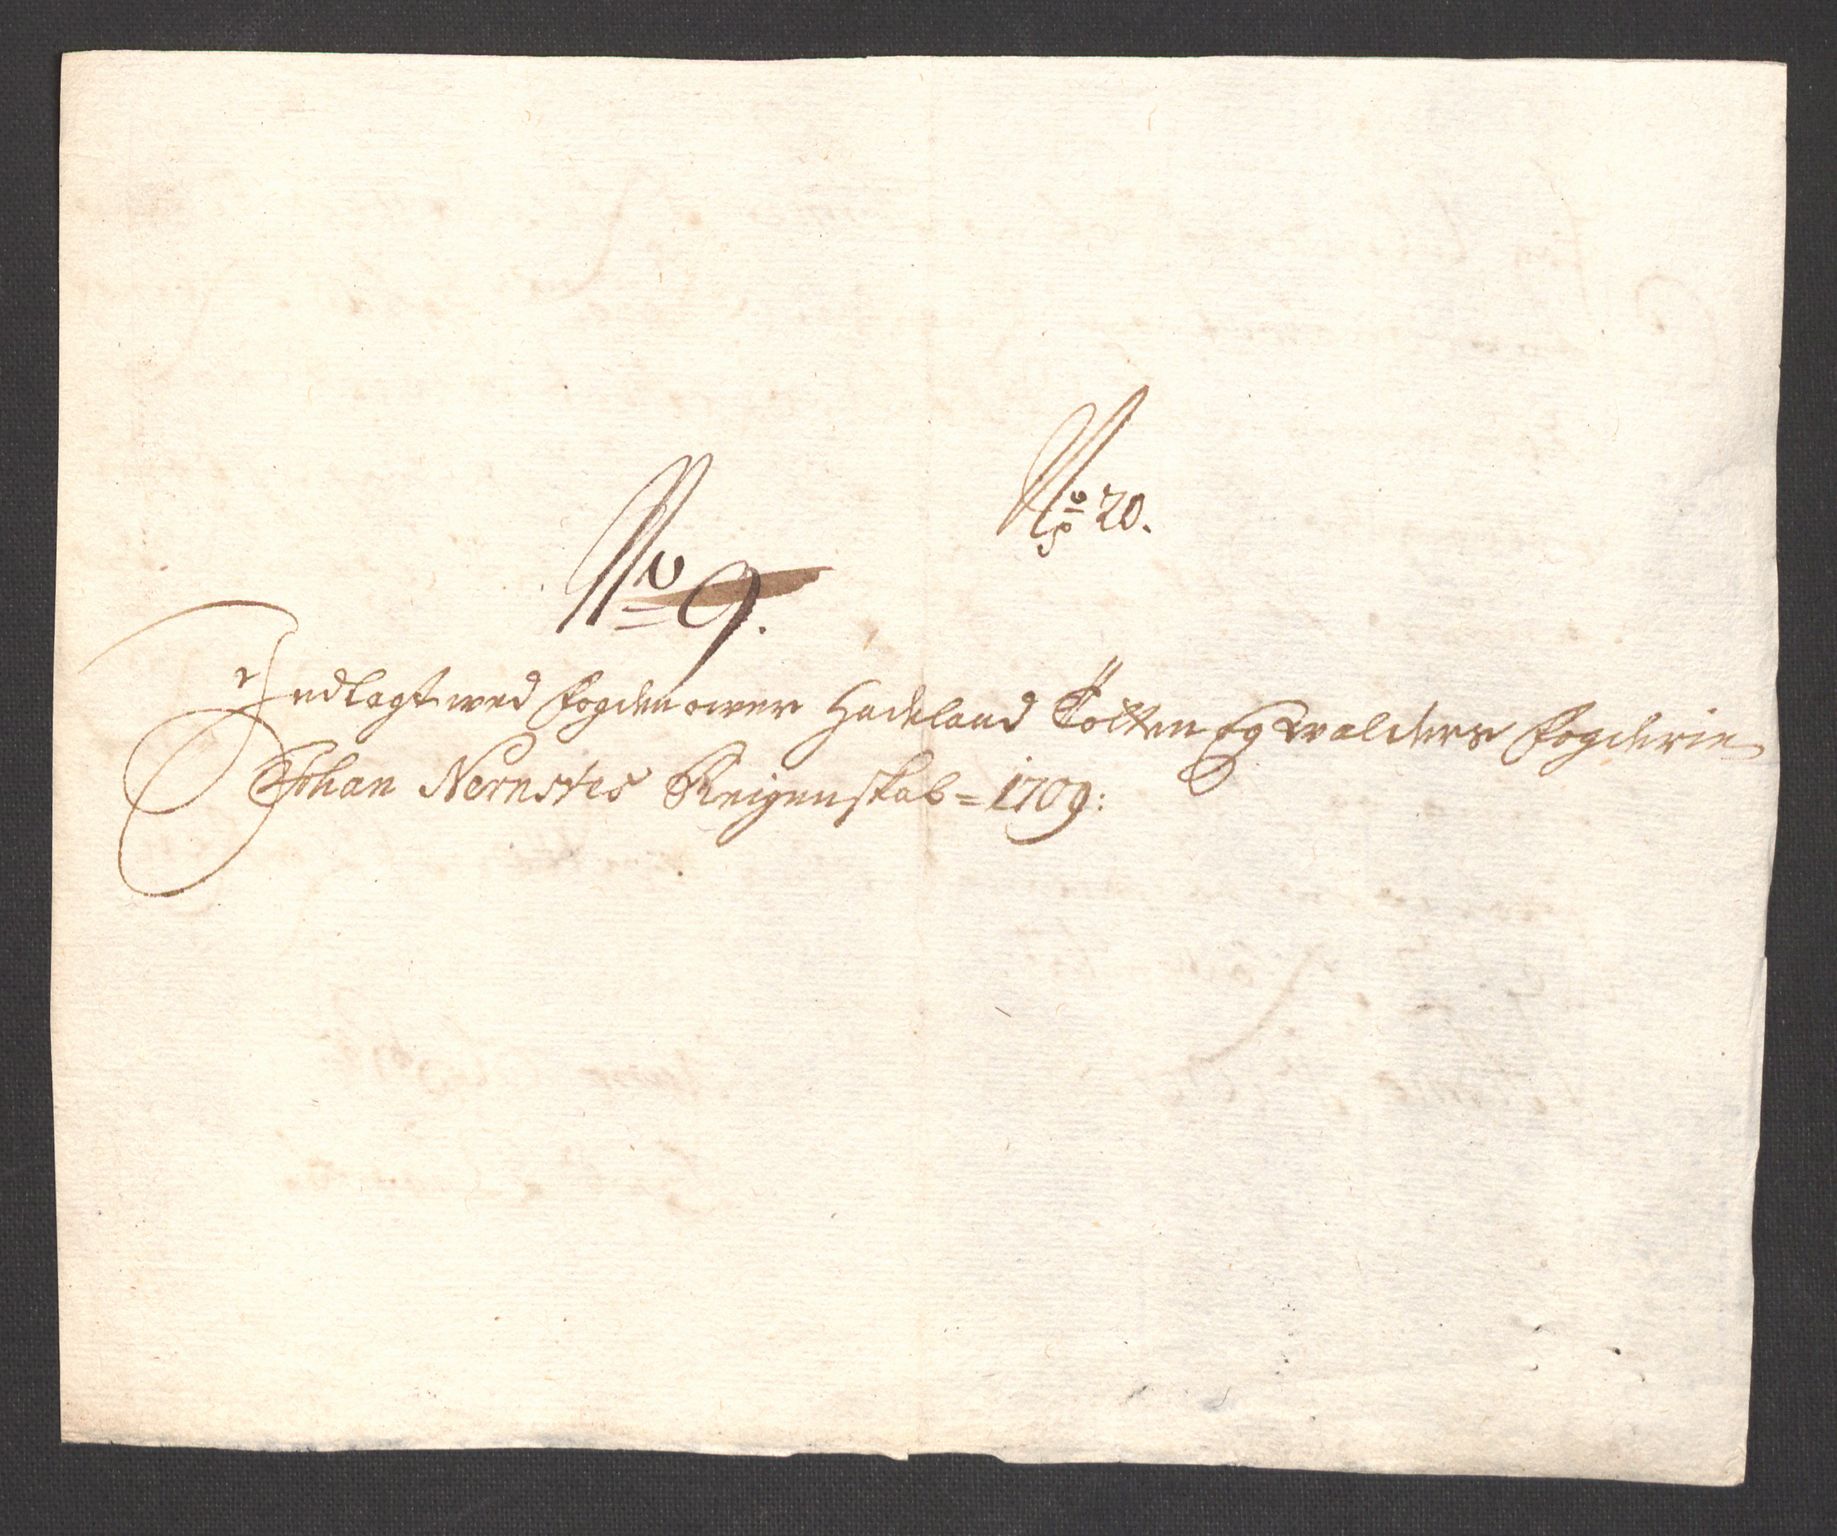 No 20.
No 9.
Indlagt wed fogden ower Hadeland Totten og walders fogderie
Johan Nernstes Reigenskab = 1709: